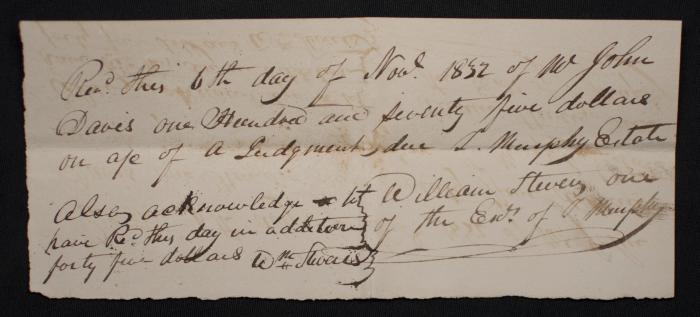 Recd. this 6th day of Novr. 1832 of Mr John
Davis one Hundred and seventy five dollars
on a/c of a Judgment, due S. Murphy Estate
William Stevens one
of the Exrs. of S. Murphy
Also, acknowledge to
have Recd. this day in addition
forty five dollars Wm Stevens